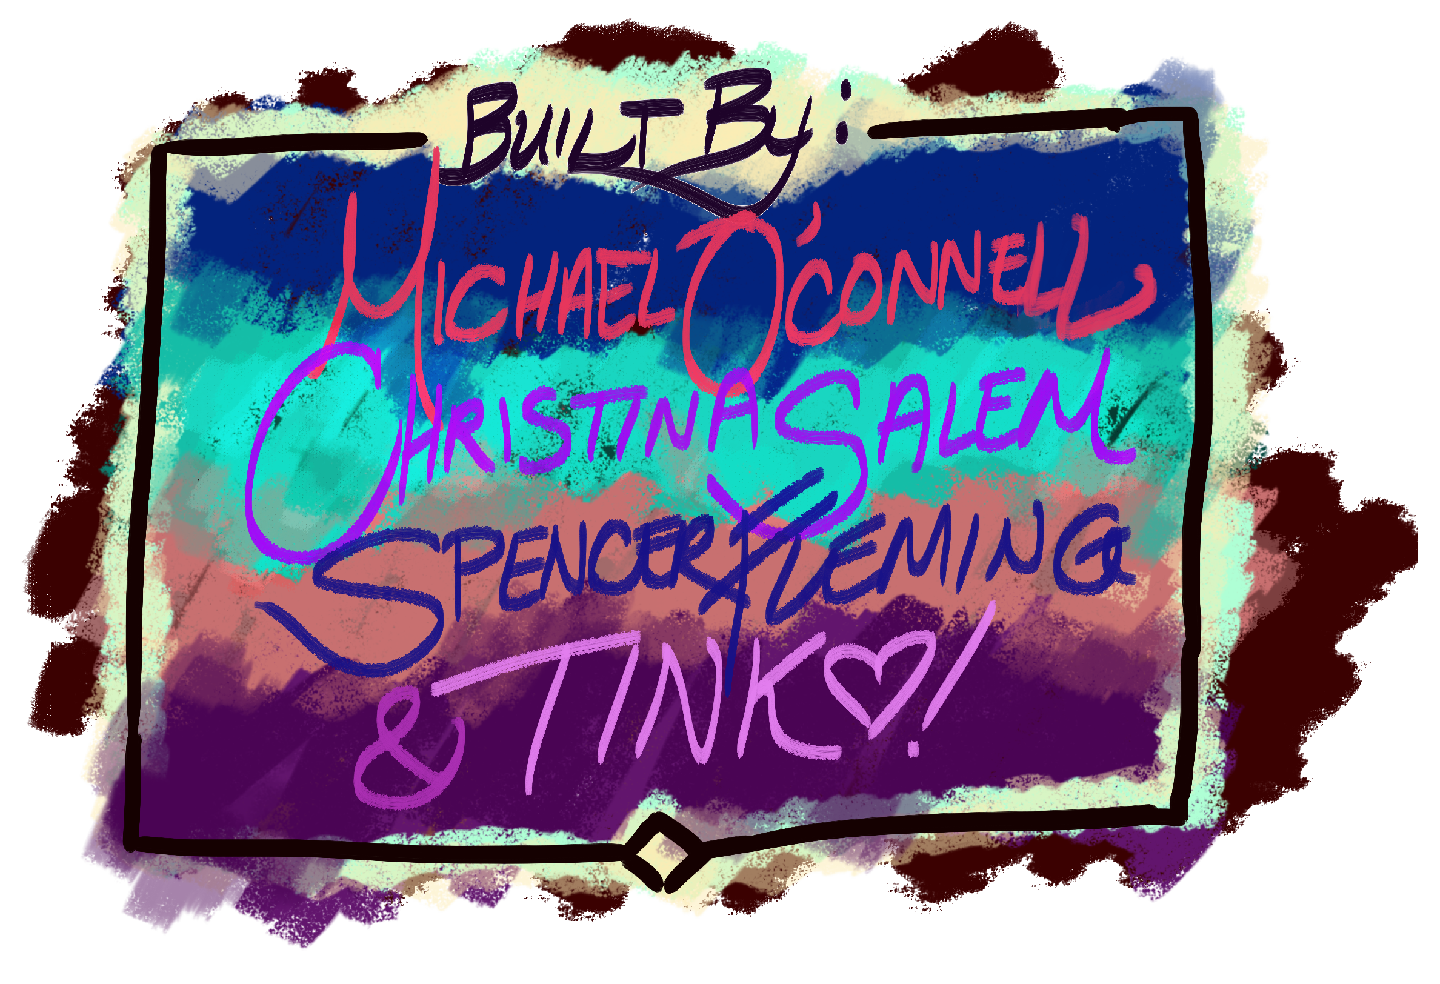 BUILT BY:
MICHAEL O'CONNELL
CHRISTINA SALEM
SPENCER FLEMING
& TINK♡!